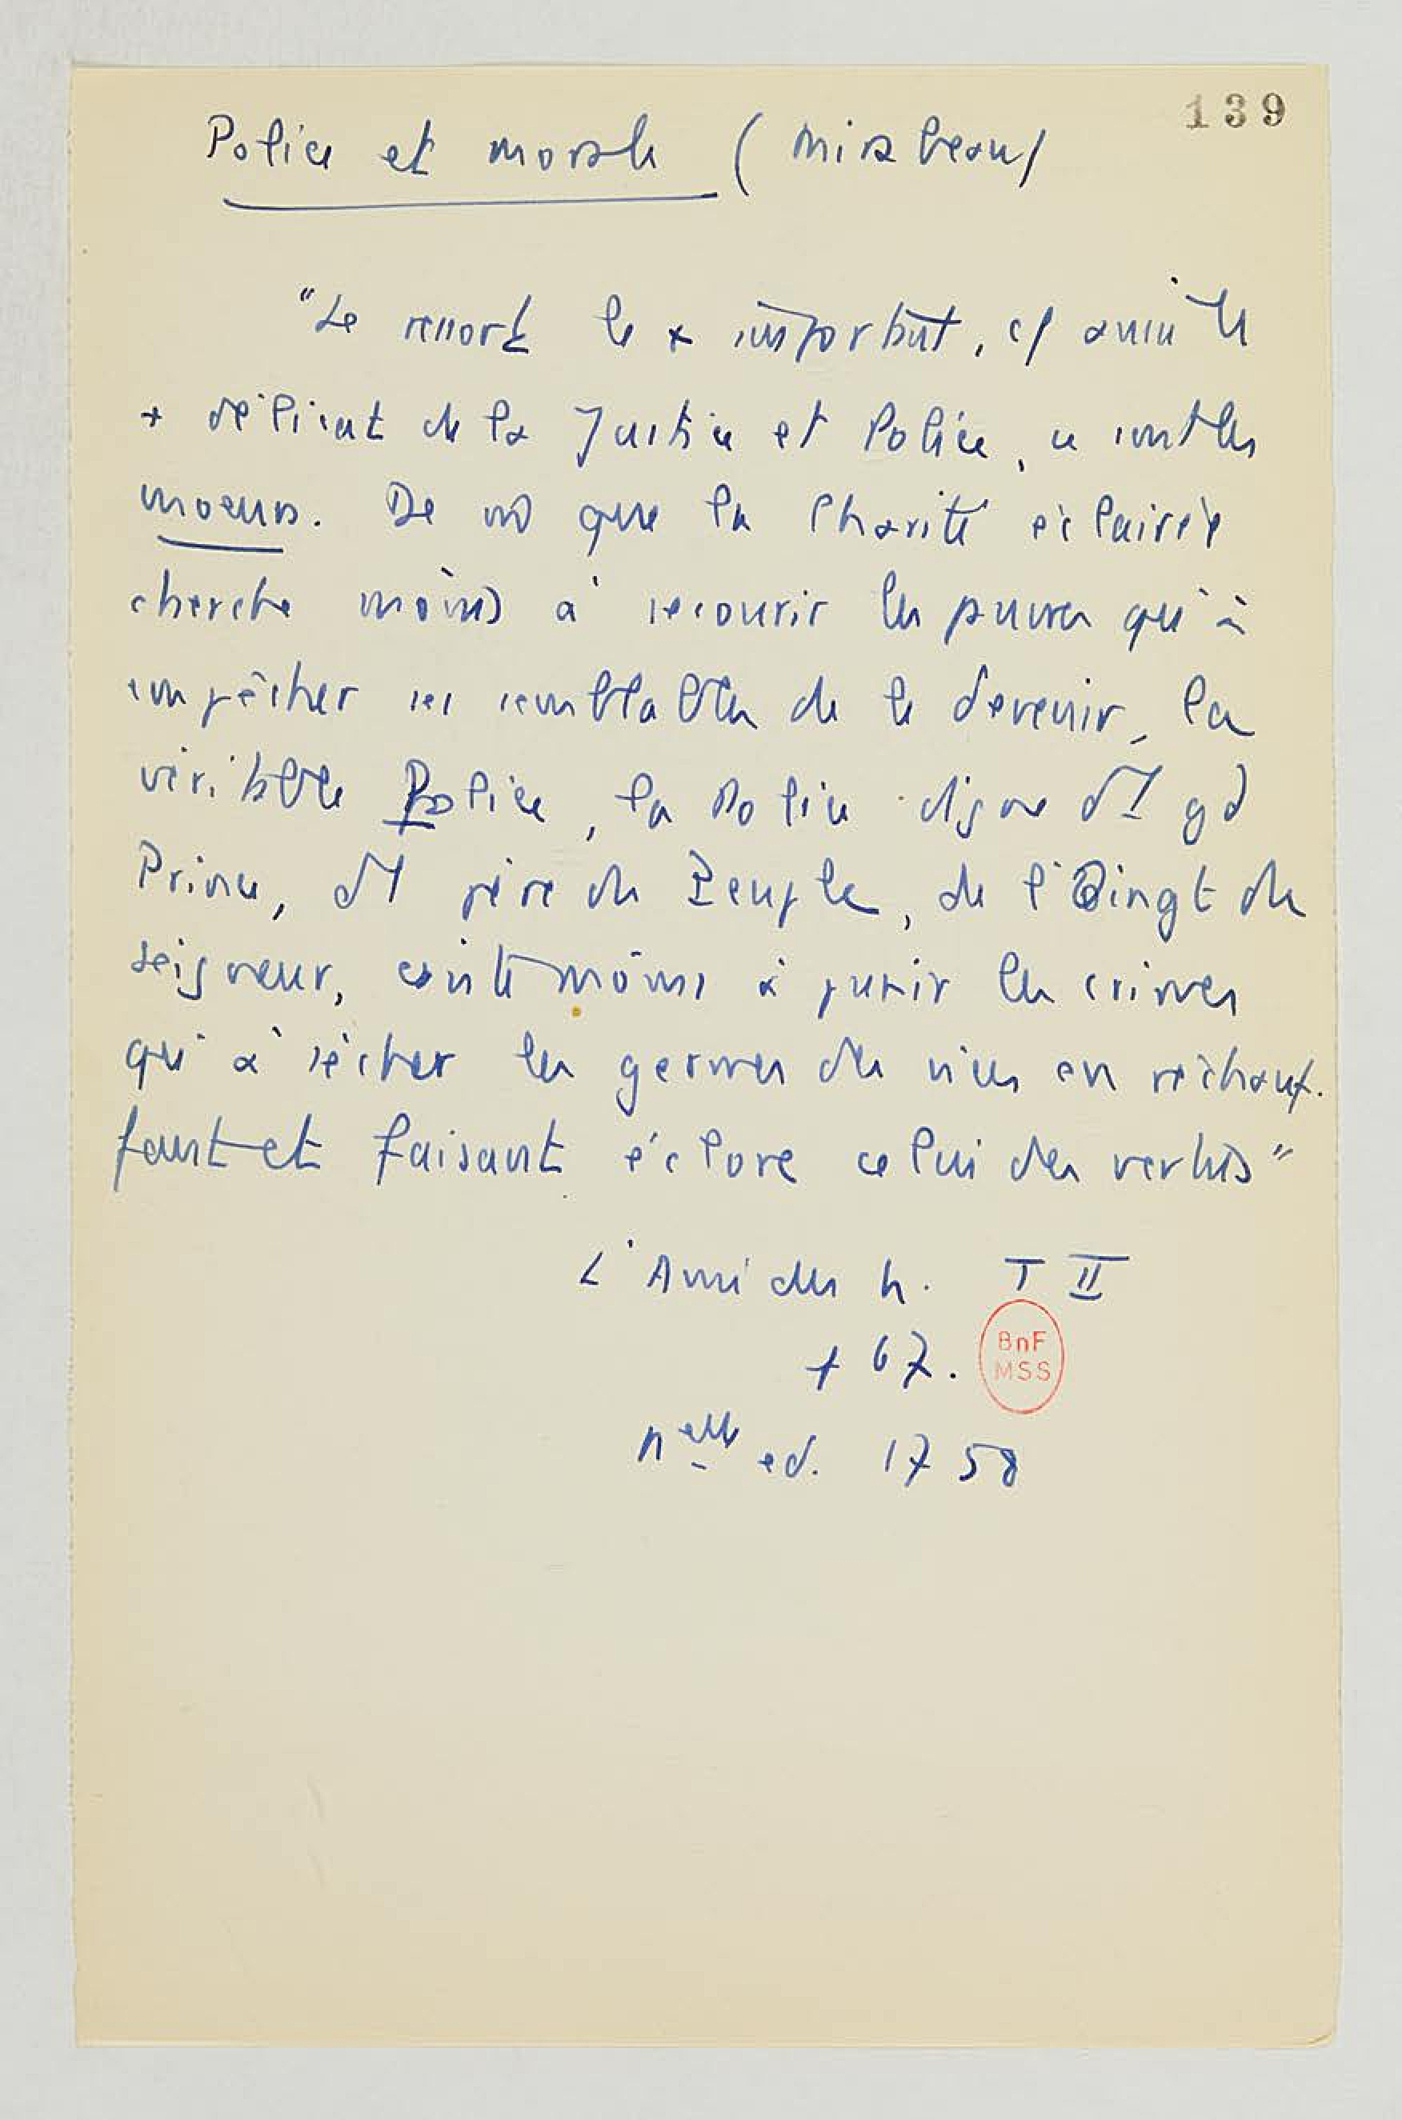 139
Police et morale (Mirabeau)
"Le ressort le + important, et aussi le
+ délicat de la Justice et Police, ce sont les
moeurs. De m̂ que la Charité éclairée
cherche moins à secourir les pauvres qu'à
empêcher ses semblables de le devenir, la
véritable Police, la Police digne d'1 gd
Prince, d'1 père du Peuple, de l'Oingt du
Seigneur, consiste moins à punir les crimes
qu'à sécher les germes du vices en réchauf-
fant et faisant éclore celui des vertus"
L'Ami des h. T II
p 67.
BnF
MSS
nelle ed. 1758